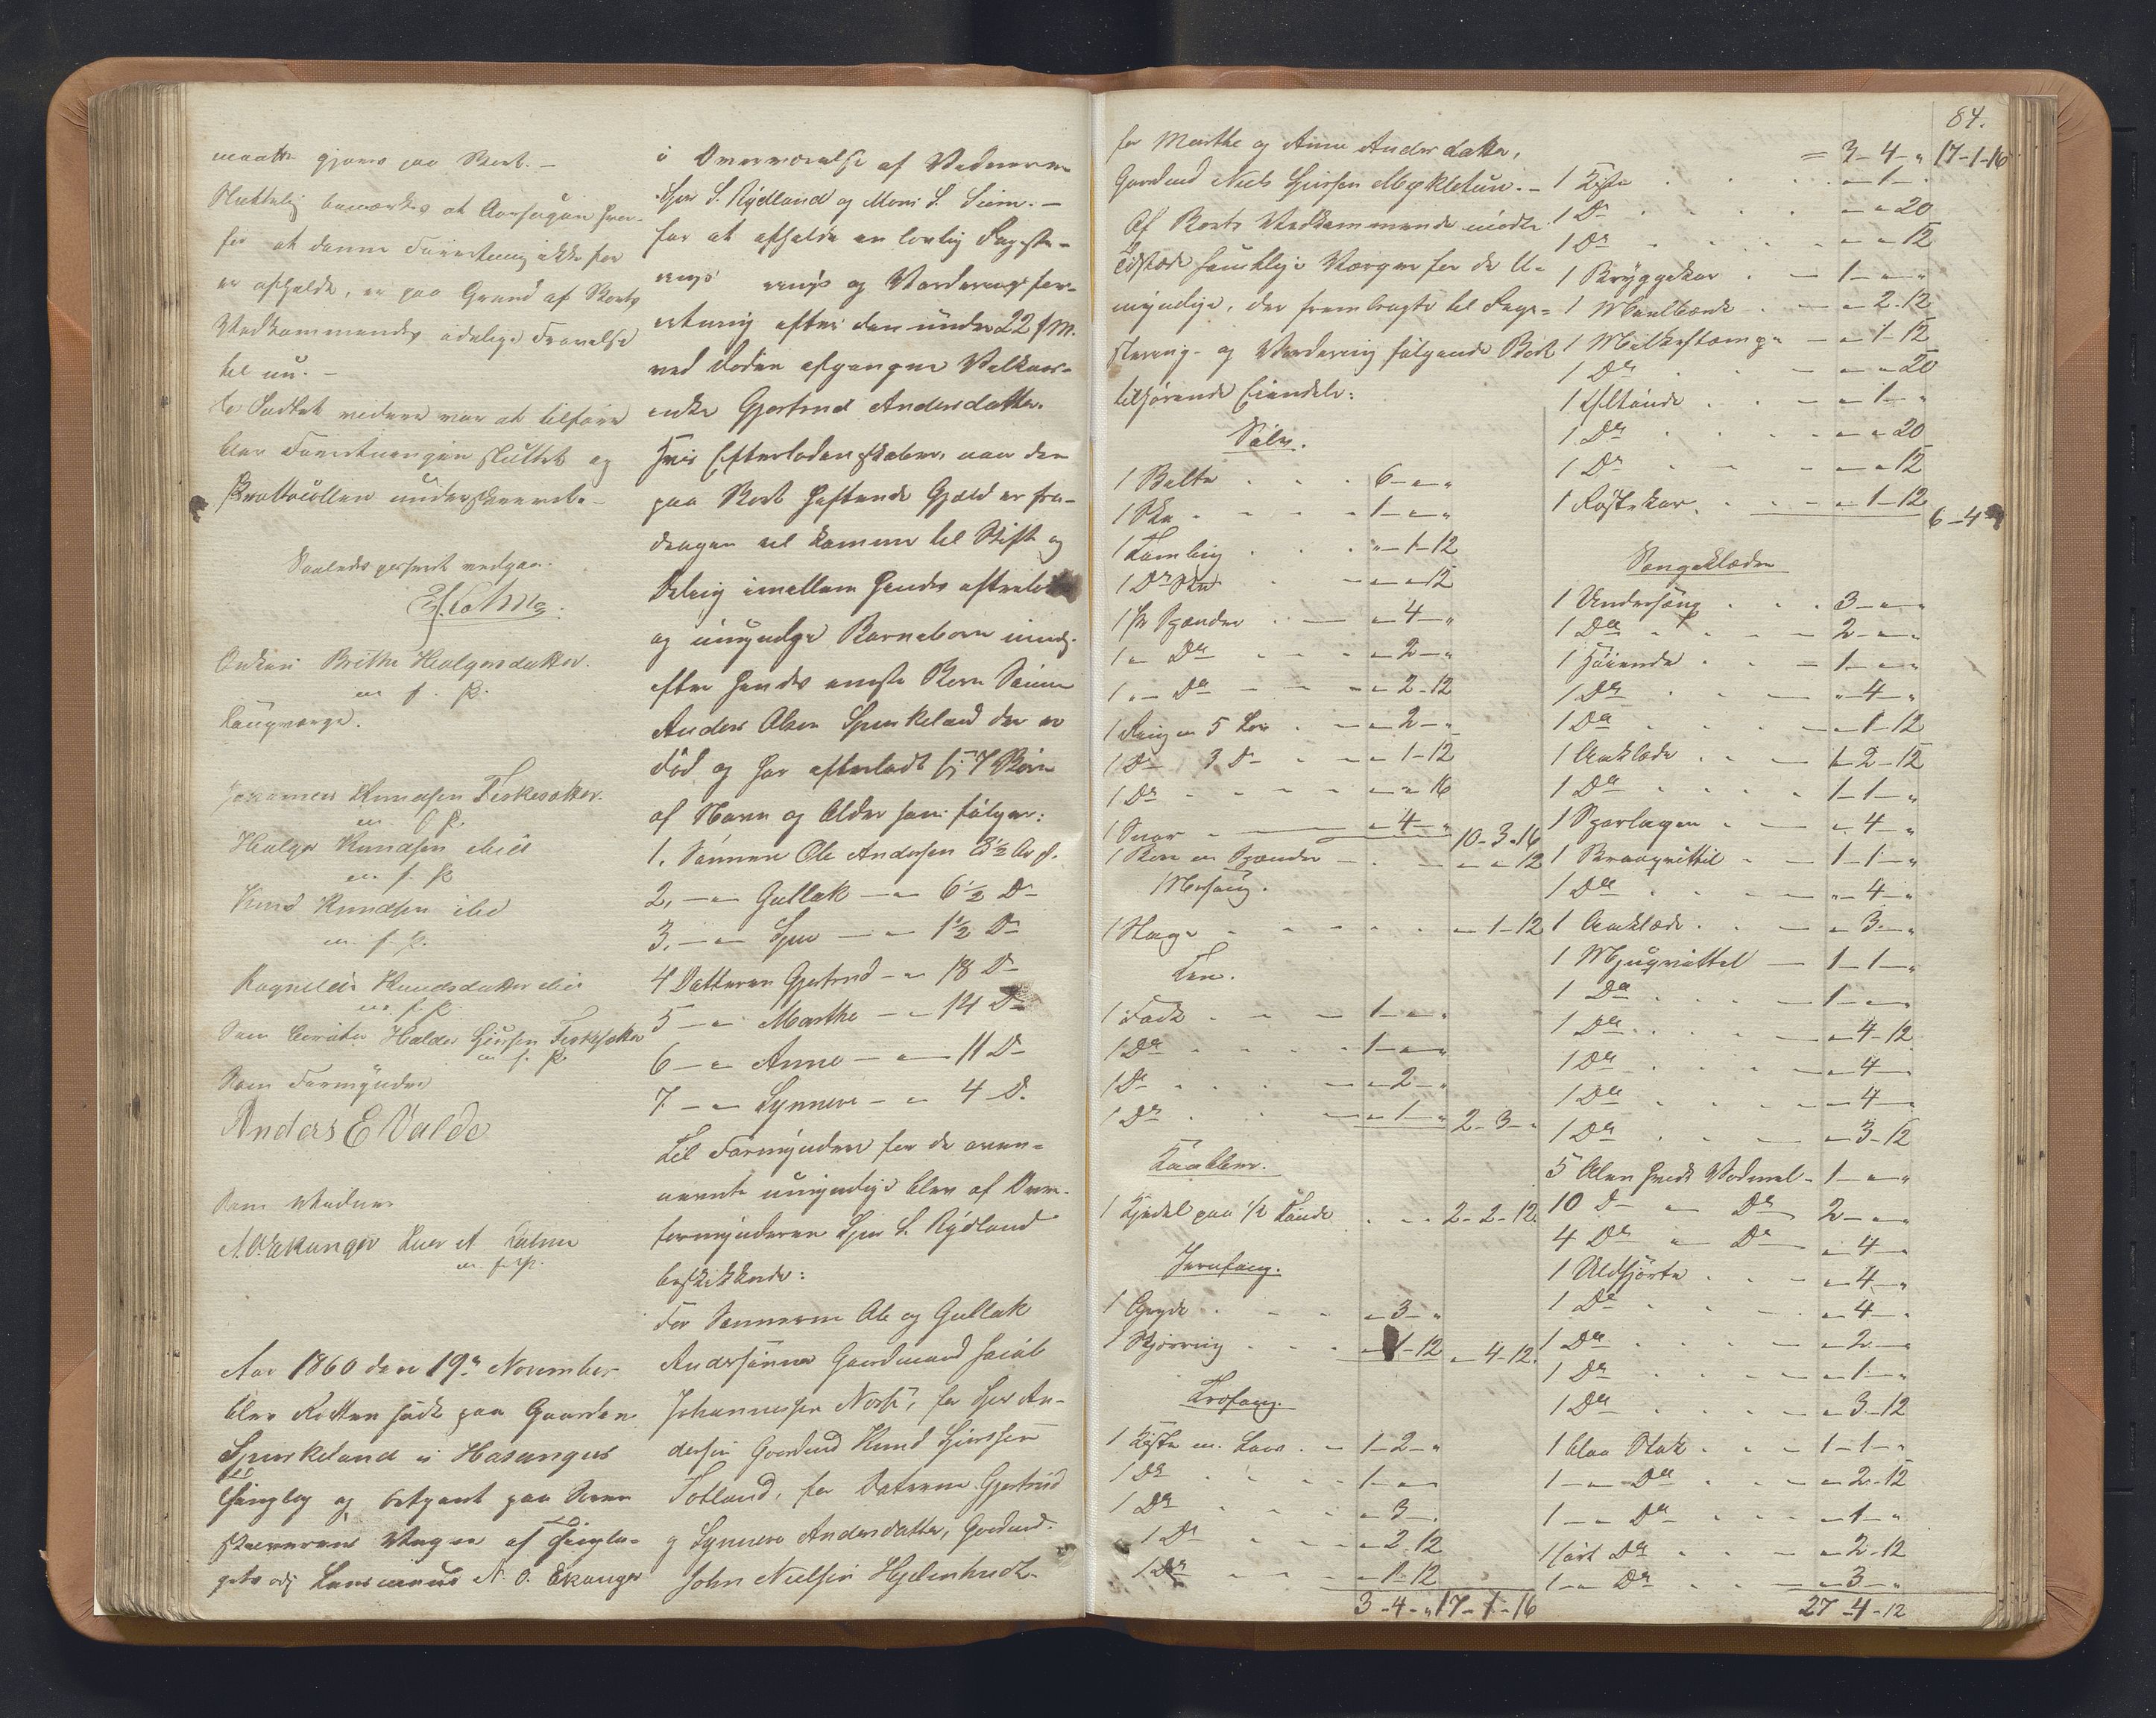 maatte gjøres paa Boet. –
Sluttelig bemærkes at Aarsagen hvor-
for at denne Forretning ikke før
er afholdt, er paa Grund af Boets
Vedkommendes adelige Fraværelse
til nu. –
Da Intet videre var at tilføre
blev Forretningen sluttet og
Protocollen underskreven. –
Saaledes passeret vedgaaes.
Enken Brithe Helgesdatter
m. f. P.
Laugværge.
Johannes Knudsen Feskesætter.
m. f. P.
Helge Knudsen ibid
m. f. P.
Knud Knudsen ibid
m. f. P.
Ragnilda Knudsdatter ibid
m. f. P.
Som Curator Haldor Giersen Feskesætter
m. f. P.
Som Formynder
Anders E Valde
Som Vidner
N. O. Ekanger Lars A
m. f. P.
Aar 1860 den 19de November
blev Retten sat paa Gaarden
Spurkeland i Hasanger
Thinglag og betjent paa Soren-
skriverens Vegne af Thingla-
gets Lensmand N. O. Ekanger
i Overværelse af Vidnerne
S. Rydland og Mons S. Siem. –
for at afholde en lovlig Registre-
rings og Vurderingsfor-
retning efter den under 22 f. M.
ved Døden afgangne Velkaars-
enke Gjertrud Andersdatter.
Hvis Efterladenskaber, naar den
paa Boet heftende Gjæld er fra-
dragen vil komme til Skifte og
Deling imellem hendes efterladte
og umyndige Barnebørn
efter hendes eneste Barn Sønnen
Anders Olsen Spurkeland der er
død og har efterladt sig 7 Børn
af Navn og Alder som følger:
1. Sønnen Ole Andersen 8½ Aar gl.
2, – " – Gullak – " – 6½ D–
3, – " – – " – 1½ D–
4 Datteren Gjertrud – " 18 D–
5 – " – Marthe – " 14 D–
6 – " – Anne – " – 11 D–
7 – " – Synneve – " 4 D.
Til Formyndere for de oven-
nævnte umyndige blev af Over-
formynderen S. Rydland
beskikkede:
For Sønnerne Ole og Gullak
Anderssønner Gaardmand
Johannessen for An-
dersen Gaardmd Knud Giersen
Totland, for Døtrene Gjertrud
og Synneve Andersdatter, Gaardmd.
John Nielsen
84.
for Marthe og Anne Andersdatter,
Gaardmd Niels Giersen Mykletun. –
Af Boets Vedkommende mødte
tilstede samtlige Værger for de U-
myndige, der frembragte til Regi-
strering og Vurdering følgende Boet
tilhørende Eiendele:
Sølv.
1 Belte . . . 6 – " – "
1 Ske . . . 1 – " – "
1 Tumling . . . " – 1 – 12
1 Do Ske – " – " 12
1 Pr Spænder . – " – 4 – "
1 " Do – – " – 2 – "
1 " – Do – – " – 2 – 12
1 Ring m 5 Løv . – " – 2 – "
1 D– 3 D– – " – 1 – 12
1 Do – – – " – " 16
1 – " – 4 – " 10 – 3 – 16
1 Spænder – – " – " 12
Messing.
1 Stage – – – " – 1 – 12
Tin.
1 Fad . – – 1 – " – "
1 Do . . . 1 – " – "
1 Do . . . – " – 2 – "
1 Do . . – " – 1 – " 2 – 3 – "
Kaabber.
1 Kjedel paa ½ Tønde . – – 2 – 2 – 12
Jernfang.
1 Gryde . – – – " – 3 – "
1 . . . – " – 1 – 12 – " – 4 – 12
Træfang.
1 Kiste m. Laas . – 1 – 2 – "
1 Do . . . 1 – " –
1 Do . . . – " – 3 – .
1 Do . . . – " – 2 – 12
1 Do . . . – " – 1 – 12
3 – 4 – " 17 – 1 – 16
= 3 – 4 – " 17 – 1 – 16
1 Kiste . . . – " – 1 – "
1 Do . . . – " – " 20
1 Do . . . – " – " 12
1 Bryggekar . – 1 – " – "
1 . – " – 2 – 12
1 Melkestamp – " – 1 – 12
1 Do . . – " – " 20
1 Øltønde . . – " – 1 – "
1 Do . . – " – " 20
1 Do . . – " – " 12
1 Røstekar . . – " – 1 – 12 6 – 4 –
Sengeklæder
1 Undersæng . . . 3 – " – "
1 Do . . – 2 – " – "
1 Høiende . . – 1 – " – "
1 Do . . – " – 4 – "
1 Do . . – " – 1 – 12
1 Aaklæde . . – 1 – 2 – 12
1 Do . . . 1 – 1 – "
1 Sparlagen . – " – 4 – "
1 . – 1 – 1 – "
1 Do . . – " – 4 – "
1 Aaklæde . . – " – 3 – "
1 – 1 – 1 – "
1 Do . . – 1 – " – "
1 Do . . – " – 4 – 12
1 Do . . – " – 4 – "
1 Do . . – " – 4 – "
1 Do . . – " – 3 – 12
5 Alen hvidt Vadmel – 1 – " – "
10 D– " – Do 2 – " – "
4 Do " – Do – " – 4 – "
1 Uldskjorte . . – " – 4 – "
1 Do . . – " – 4 – "
1 Do . . – " – 2 – "
1 Do . . – " – 1 – "
1 Do . . – " – 3 – 12
1 blaa Stak . . – 1 – 1 – "
1 – " – Do . – " – 2 – 12
1 – " – Do . – " – 1 – "
1 sort Do . – " – 2 – 12
1 – " – Do . – " – 3 – "
27 – 4 – 12